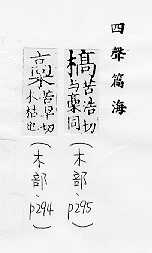 四聲篇海
槗苦浩切与藁同(木部、p295)
槀苦早切木枯也(木部、p294)